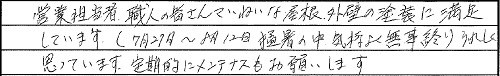 営業担当者、職人の皆さんていねいな屋根、外壁の塗装に満足
しています。(7月27日～8月12日 猛暑の中 気持よく無事終り)うれしく
思っています。定期的にメンテナスもお願いします